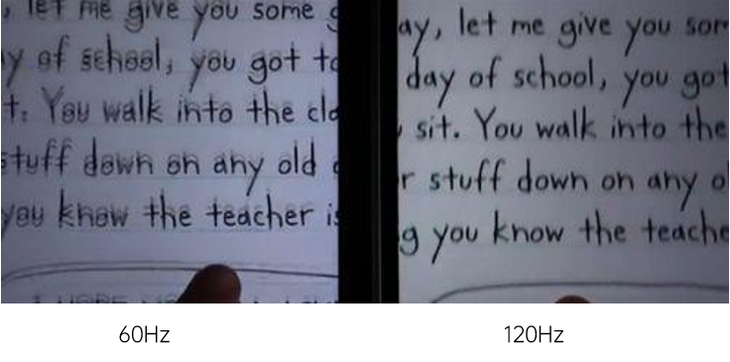 , let me give you some
y of school, you got to
t. You walk into the cla
stuff down on any old
you know the teacher is
60Hz
ay, let me give you som
day of school, you got
sit. You walk into the
r stuff down on any o
g you know the teache
120Hz